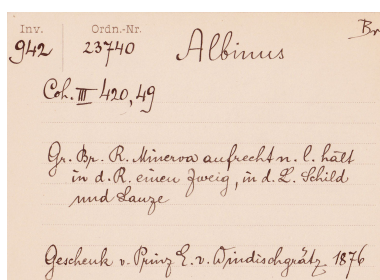 Inv. Ordn.-Nr. Br
942 23740 Albinus
Coh. III 420,49
Gr. Br. R. Minerva aufrecht n. l. hält
in d. R. einen Zweig, in d. L. Schild
und Lanze
Geschenk v. Prinz E. v. Windischgrätz 1876